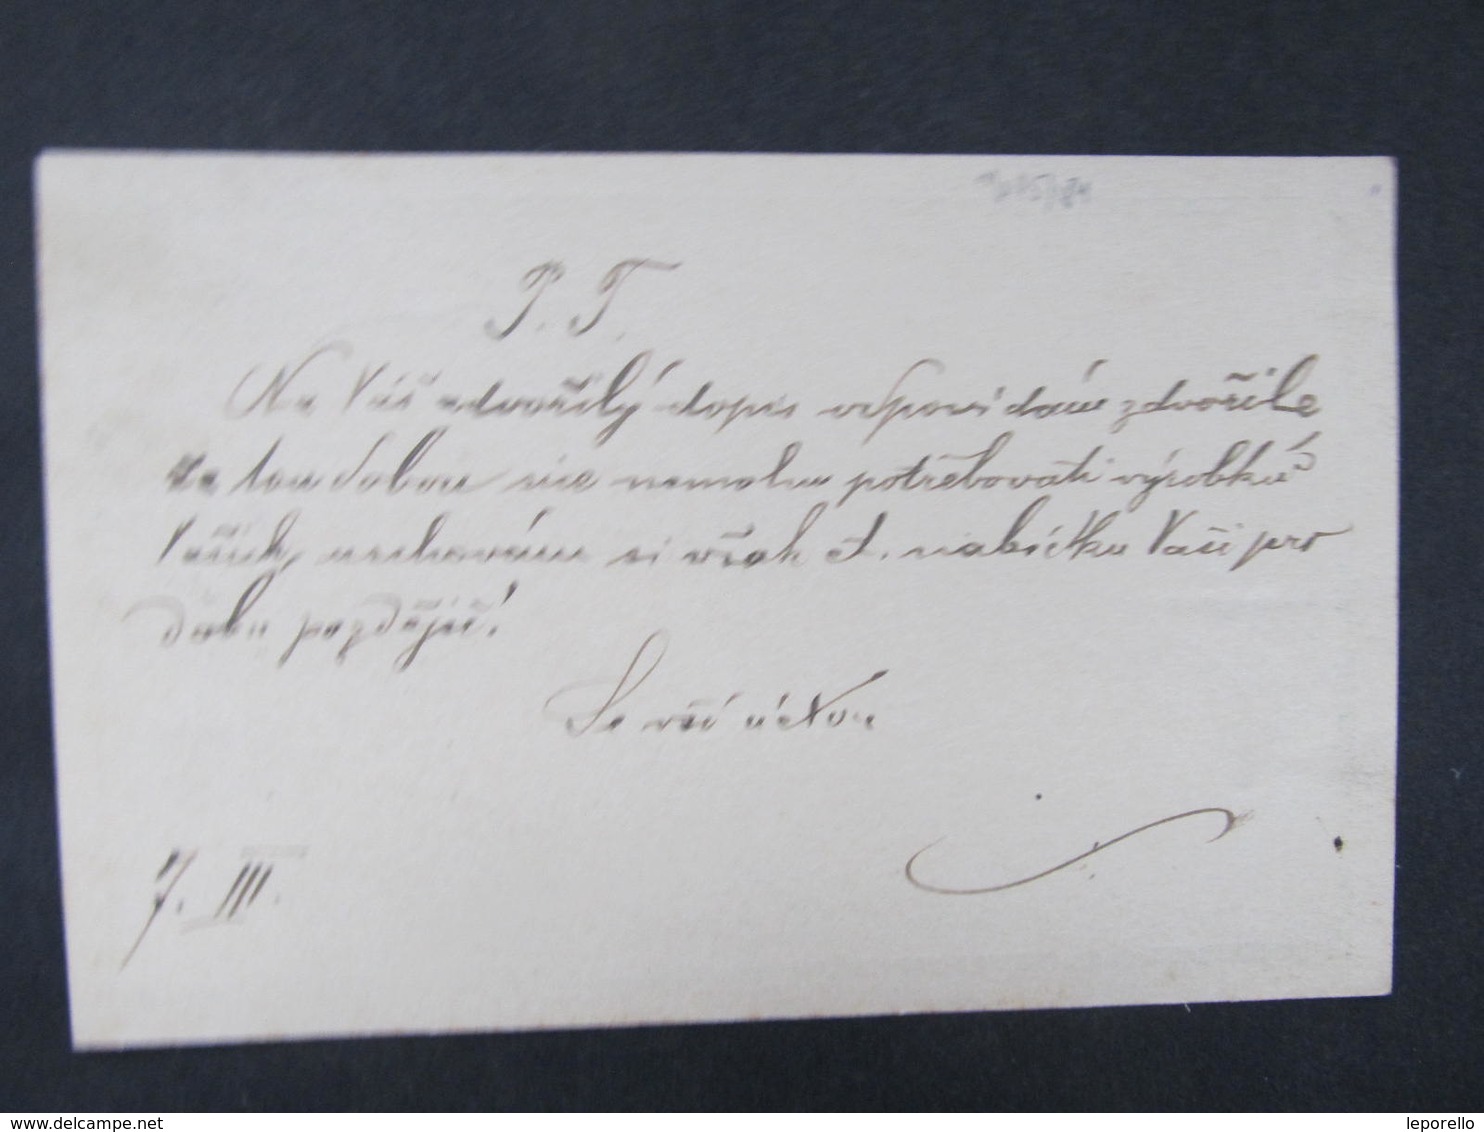 P. T.
Na Váš zdvořilý dopis odpovídám zdvořile
za tou dobou sice nemohu potřebovati výrobků
Vašich, uschovám si však ct. nabídku Vaši pro
dobu pozdější!
Se vší úctou
7. III.
delcampe.net
leporello